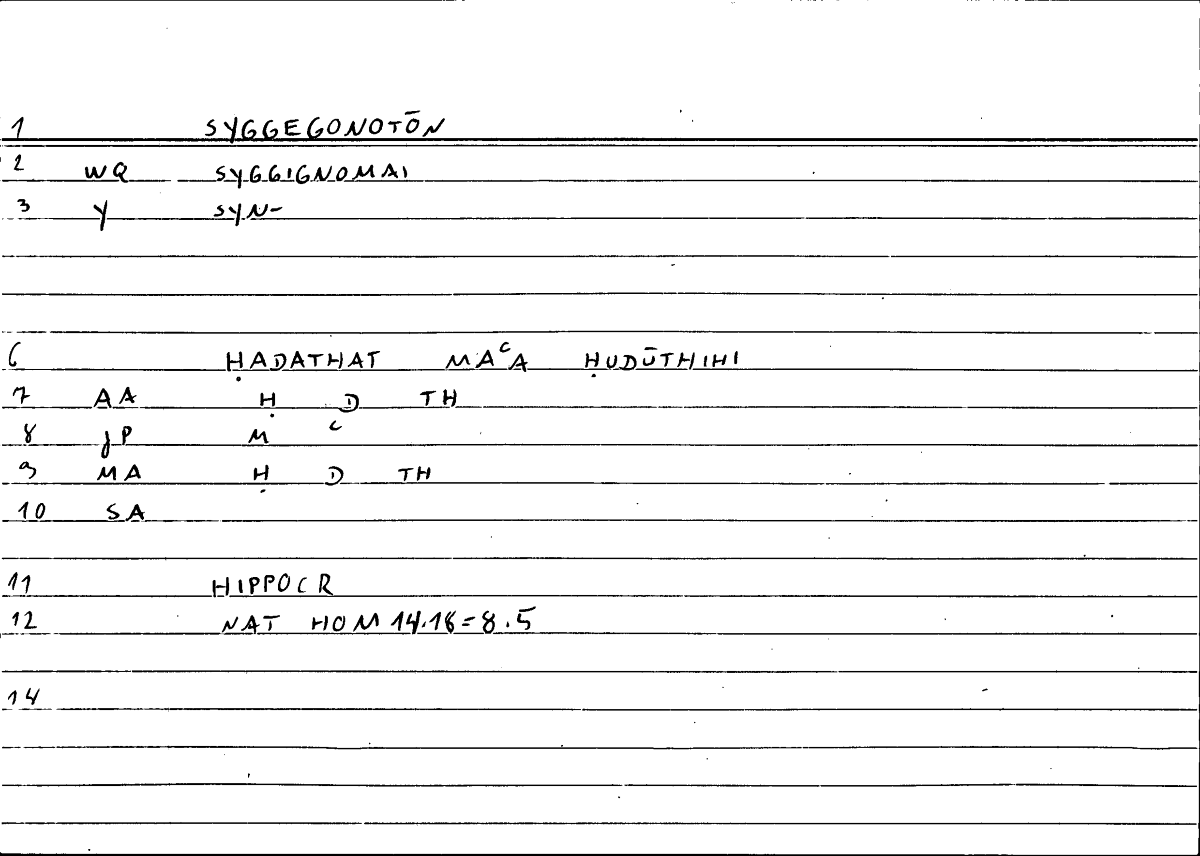 1 SYGGEGONOTŌN
2 WQ SYGGIGNOMAI
3 Y SYN-
6 ḤADATHAT MAᶜA ḤUDŪTHIHI
7 AA Ḥ D TH
8 JP M ᶜ
9 MA Ḥ D TH
10 SA
11 HIPPOCR
12 NAT HOM 14.18=8.5
14